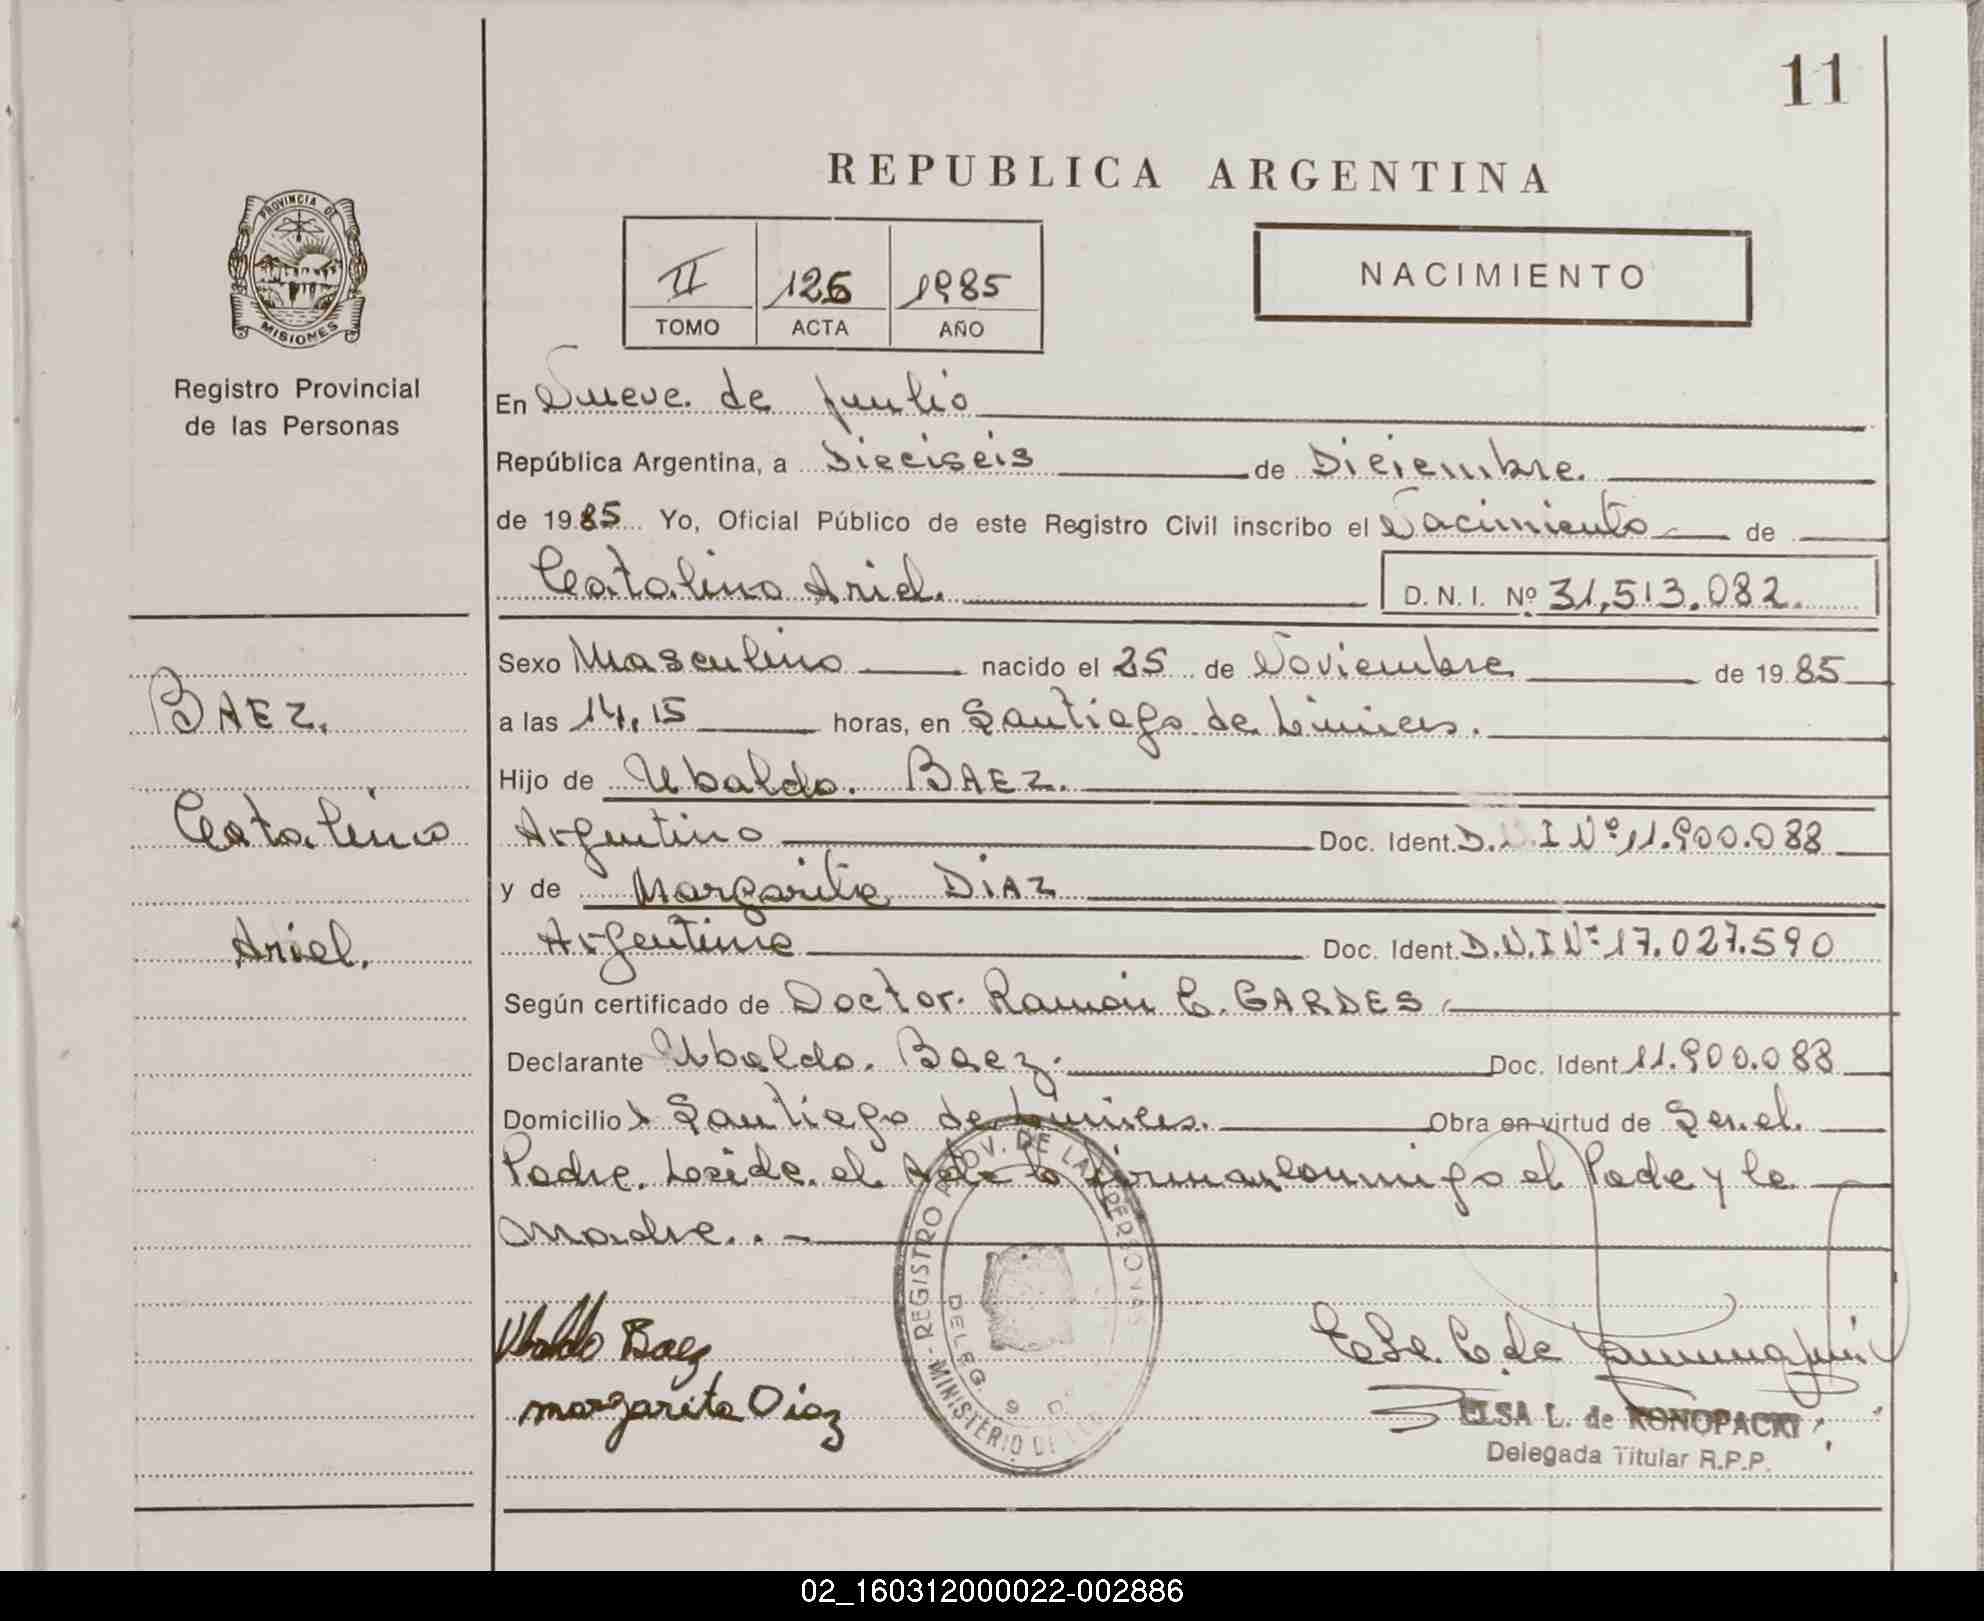 11
REPUBLICA ARGENTINA
PROVINCIA DE
MISIONES
Registro Provincial
de las Personas
II 126 1985
TOMO ACTA AÑO
NACIMIENTO
En Nueve de Julio
República Argentina, a Dieciseis de Diciembre
de 1985 Yo, Oficial Público de este Registro Civil inscribo el Nacimiento de
Catalino Ariel. D.N.I. Nº 31,513.082.
Sexo Masculino nacido el 25 de Noviembre de 1985
BAEZ.
a las 14,15 horas, en Santiago de Liniers.
Hijo de Ubaldo. BAEZ.
Catalino
Argentino Doc. Ident. D.N.I Nº 11.900.088
y de Margarita DIAZ
Ariel.
Argentina Doc. Ident. D.N.I Nº 17.027.590
Según certificado de Doctor. Ramón C. GARDES
Declarante Ubaldo. Baez. Doc. Ident 11.900.088
Domicilio Santiago de Liniers. Obra en virtud de Ser el
Padre. Leida el Acta la firman conmigo el Padre y la
Madre..-
Ubaldo Baez
margarita Diaz
REGISTRO PROV. DE LAS PERSONAS
MINISTERIO DE
DELEG. 9
ELSA L. de KONOPACKI
Delegada Titular R.P.P.
02_160312000022-002886